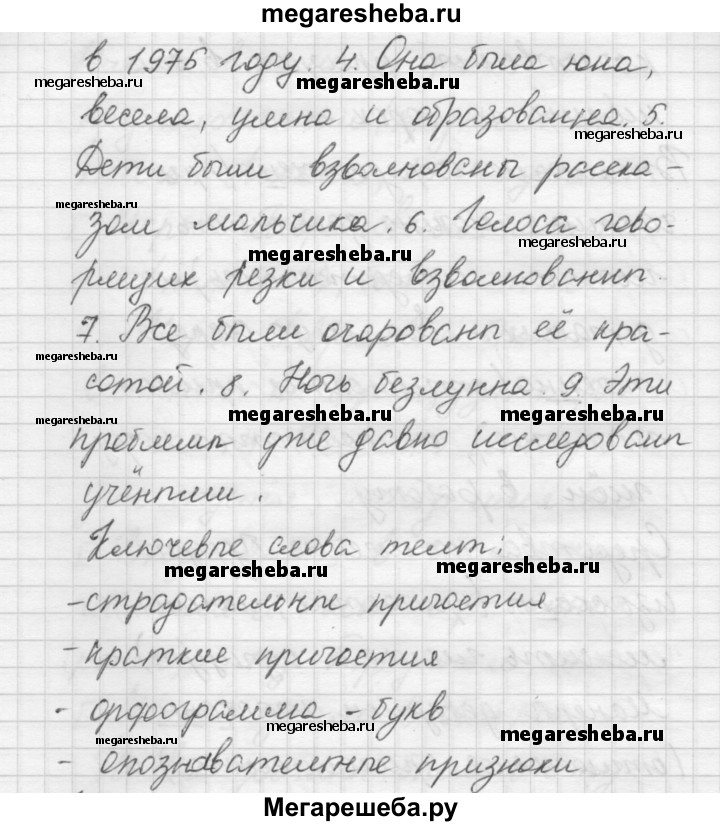 megaresheba.ru
в 1975 году. 4. Она была юна,
megaresheba.ru
megaresheba.ru
весела, умна и образованна. 5.
megaresheba.ru
Дети были взволнованы расска-
megaresheba.ru
зом мальчика. 6. Голоса гово-
megaresheba.ru
megaresheba.ru
рящих резки и взволнованны.
7. Все были очарованы её кра-
megaresheba.ru
сотой. 8. Ночь безлунна. 9. Эти
megaresheba.ru
megaresheba.ru
megaresheba.ru
проблемы уже давно исследованы
учёными.
Ключевые слова темы:
megaresheba.ru
megaresheba.ru
-страдательные причастия
- краткие причастия
- орфограмма - букв
megaresheba.ru
megaresheba.ru
megaresheba.ru
- опознавательные признаки
Мегарешеба.ру